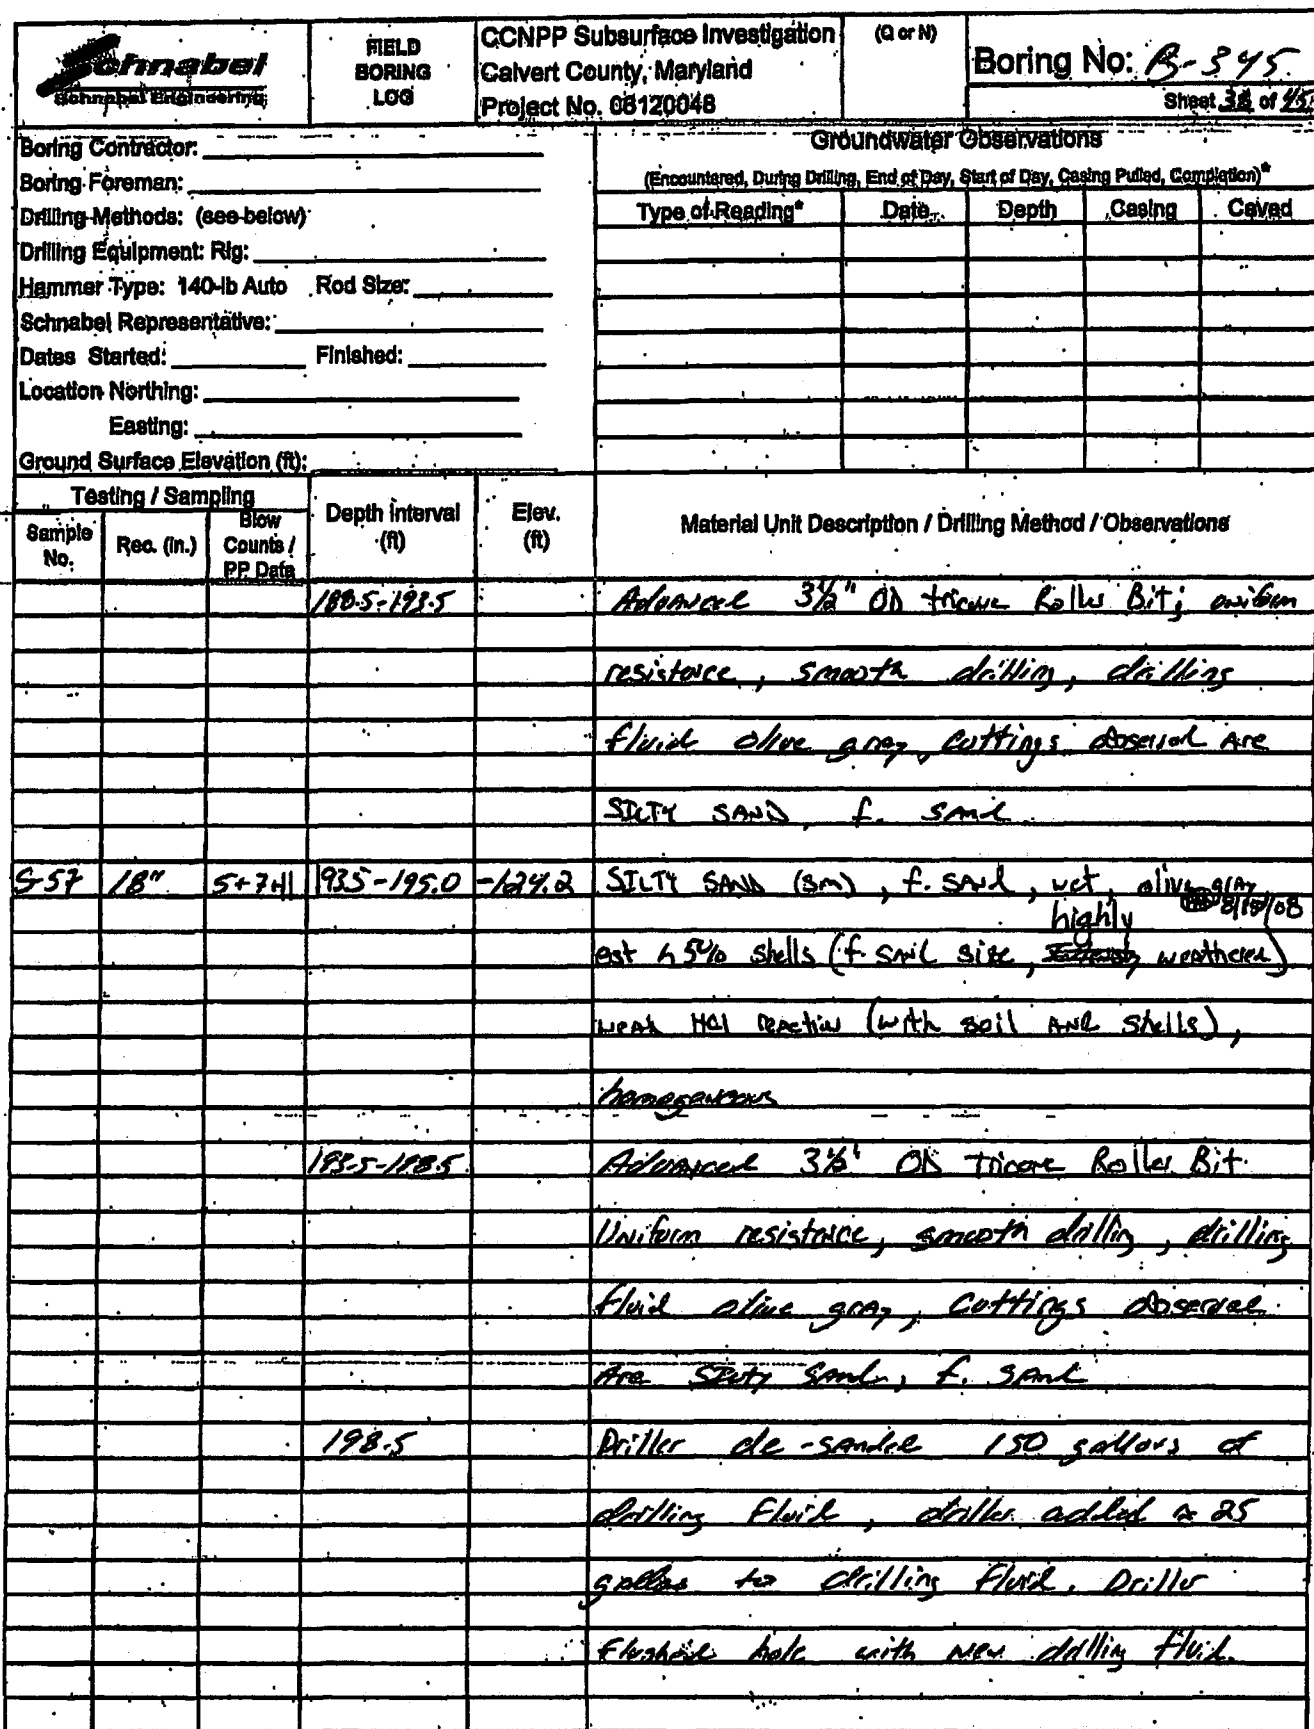 Schnabel
Schnabel Engineering
FIELD
BORING
LOG
CCNPP Subsurface Investigation
Calvert County, Maryland
Project No. 06120048
(Q or N)
Boring No: B-345
Sheet of 45
Boring Contractor:
Boring Foreman:
Drilling Methods: (see below)
Drilling Equipment: Rig:
Hammer Type: 140-lb Auto Rod Size:
Schnabel Representative:
Dates Started: Finished:
Location Northing:
Easting:
Ground Surface Elevation (ft):
Groundwater Observations
(Encountered, During Drilling, End of Day, Start of Day, Casing Pulled, Completion)*
Type of Reading* Date Depth Casing Caved
Testing / Sampling
Sample No. Rec. (in.) Blow Counts / PP Data Depth Interval (ft) Elev. (ft) Material Unit Description / Drilling Method / Observations
188.5-193.5 Advanced 3½" OD tricone Roller Bit; uniform
resistance, smooth drilling, drilling
fluid olive gray, cuttings observed Are
SILTY SAND, f. sand
S-57 18" 5+7+11 193.5-195.0 -124.2 SILTY SAND (SM), f. sand, wet, olive gray
highly 8/19/08
est 5% shells (f. sand size, weathered)
weak HCl reaction (with soil and shells),
homogeneous
193.5-198.5 Advanced 3½" OD Tricone Roller Bit
Uniform resistance, smooth drilling, drilling
fluid olive gray, cuttings observed
Are Silty Sand, f. sand
198.5 Driller de-sanded 150 gallons of
drilling fluid, driller added ≈ 25
gallons to drilling fluid. Driller
flushed hole with new drilling fluid.